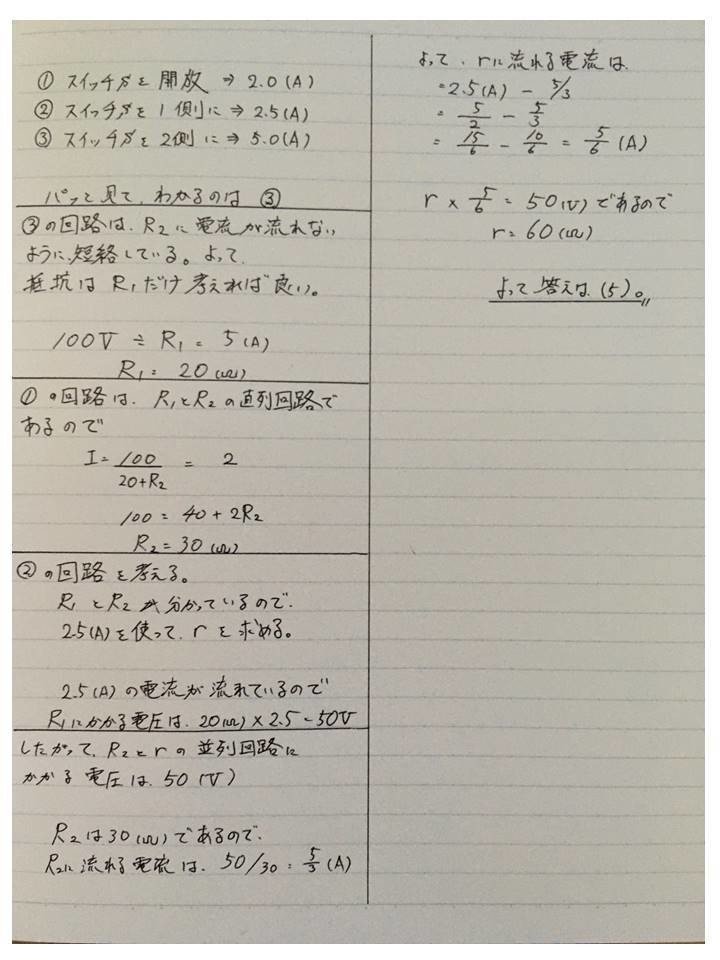 ① スイッチSを開放 ⇒ 2.0(A)
② スイッチSを1側に ⇒ 2.5(A)
③ スイッチSを2側に ⇒ 5.0(A)
パッと見て、わかるのは ③
③の回路は、R₂に電流が流れない
ように、短絡している。よって、
抵抗はR₁だけ考えれば良い。
100V ÷ R₁ = 5(A)
R₁ = 20(Ω)
①の回路は、R₁とR₂の直列回路で
あるので
I = 100/20+R₂ = 2
100 = 40 + 2R₂
R₂ = 30(Ω)
②の回路を考える。
R₁とR₂が分かっているので、
2.5(A)を使って、rを求める。
2.5(A)の電流が流れているので
R₁にかかる電圧は、20(Ω)×2.5=50V
したがって、R₂とrの並列回路に
かかる電圧は、50(V)
R₂は30(Ω)であるので、
R₂に流れる電流は、50/30 = 5/3(A)
よって、rに流れる電流は、
=2.5(A) − 5/3
= 5/2 − 5/3
= 15/6 − 10/6 = 5/6 (A)
r × 5/6 = 50(V)であるので
r = 60(Ω)
よって答えは、(5)。〃